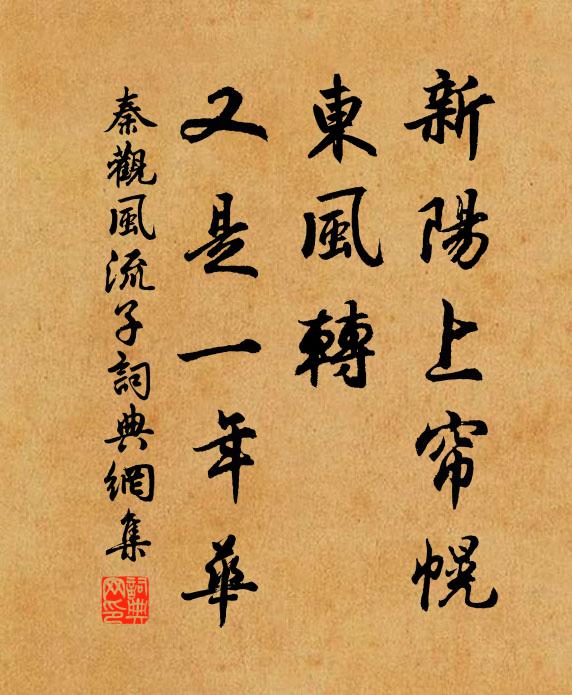 新陽上帘幌
東風轉
又是一年華
秦觀風流子詞典網集
詞典網印